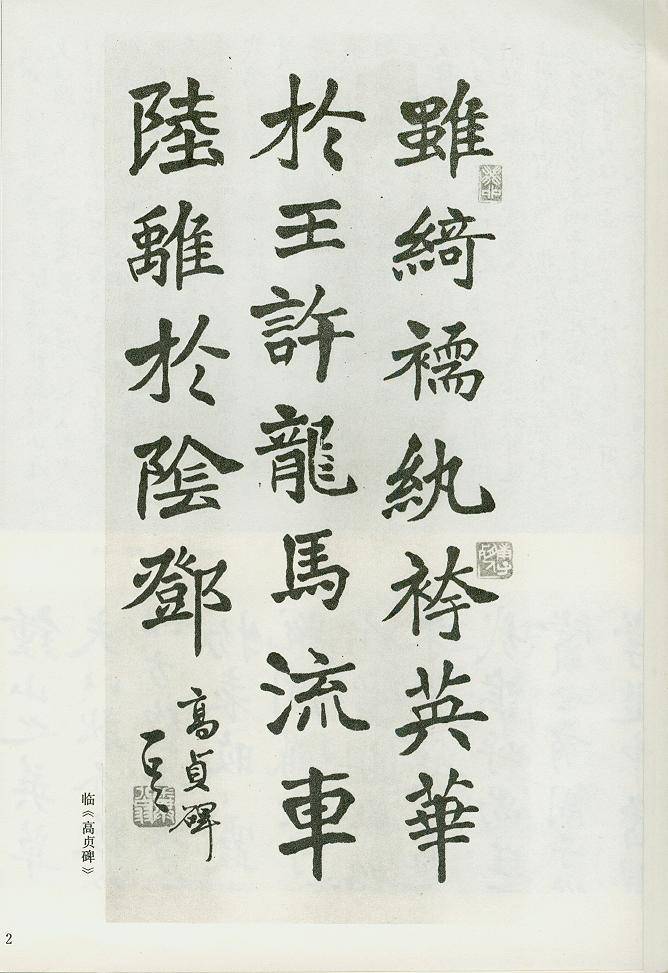 雖綺襦紈袴英華
於王許龍馬流車
陸離於陰鄧
高貞碑
临《高贞碑》
2